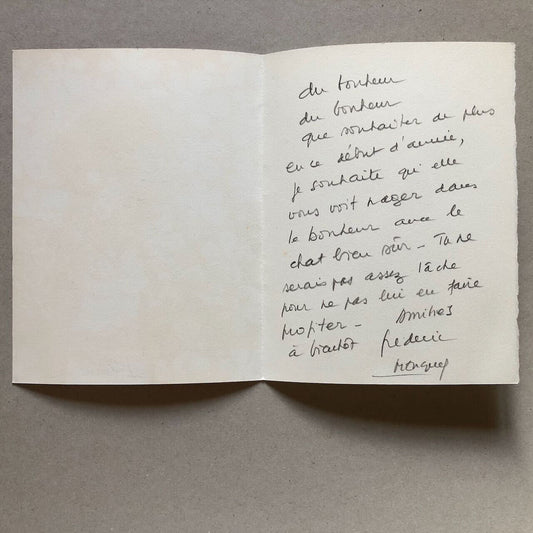 du bonheur
du bonheur
que souhaiter de plus
en ce début d'année,
je souhaite qu'elle
vous voit nager dans
le bonheur avec le
chat bien sûr – Tu ne
serais pas assez lâche
pour ne pas lui en faire
profiter – Amitiés
à bientôt frederic